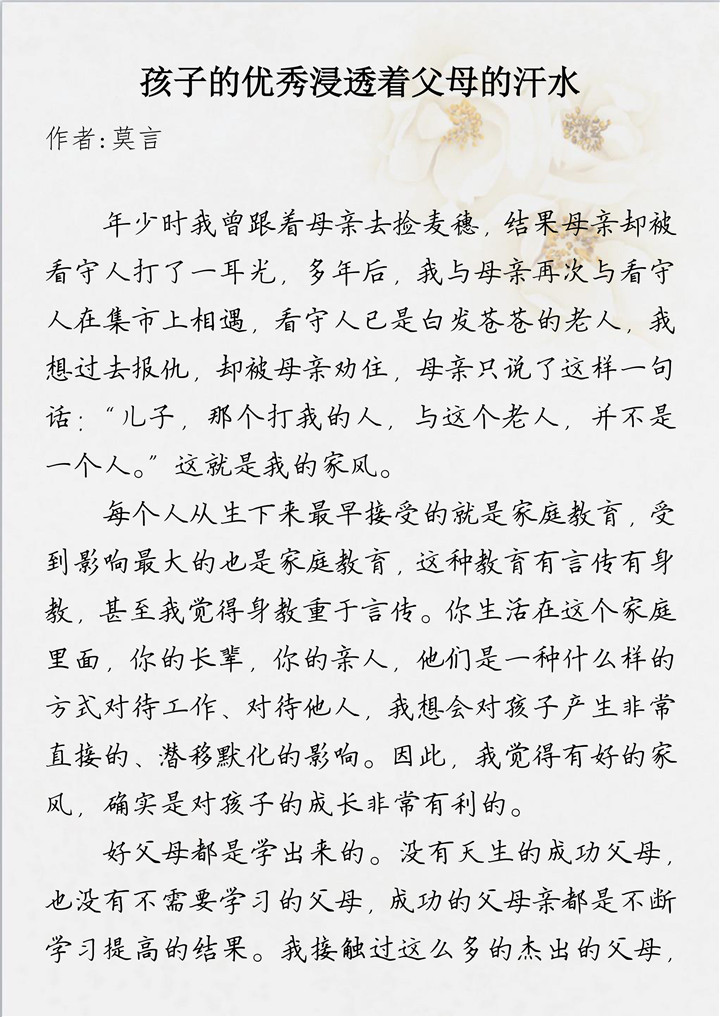 孩子的优秀浸透着父母的汗水
作者:莫言
年少时我曾跟着母亲去捡麦穗，结果母亲却被
看守人打了一耳光，多年后，我与母亲再次与看守
人在集市上相遇，看守人已是白发苍苍的老人，我
想过去报仇，却被母亲劝住，母亲只说了这样一句
话：“儿子，那个打我的人，与这个老人，并不是
一个人。”这就是我的家风。
每个人从生下来最早接受的就是家庭教育，受
到影响最大的也是家庭教育，这种教育有言传有身
教，甚至我觉得身教重于言传。你生活在这个家庭
里面，你的长辈，你的亲人，他们是一种什么样的
方式对待工作、对待他人，我想会对孩子产生非常
直接的、潜移默化的影响。因此，我觉得有好的家
风，确实是对孩子的成长非常有利的。
好父母都是学出来的。没有天生的成功父母，
也没有不需要学习的父母，成功的父母亲都是不断
学习提高的结果。我接触过这么多的杰出的父母，